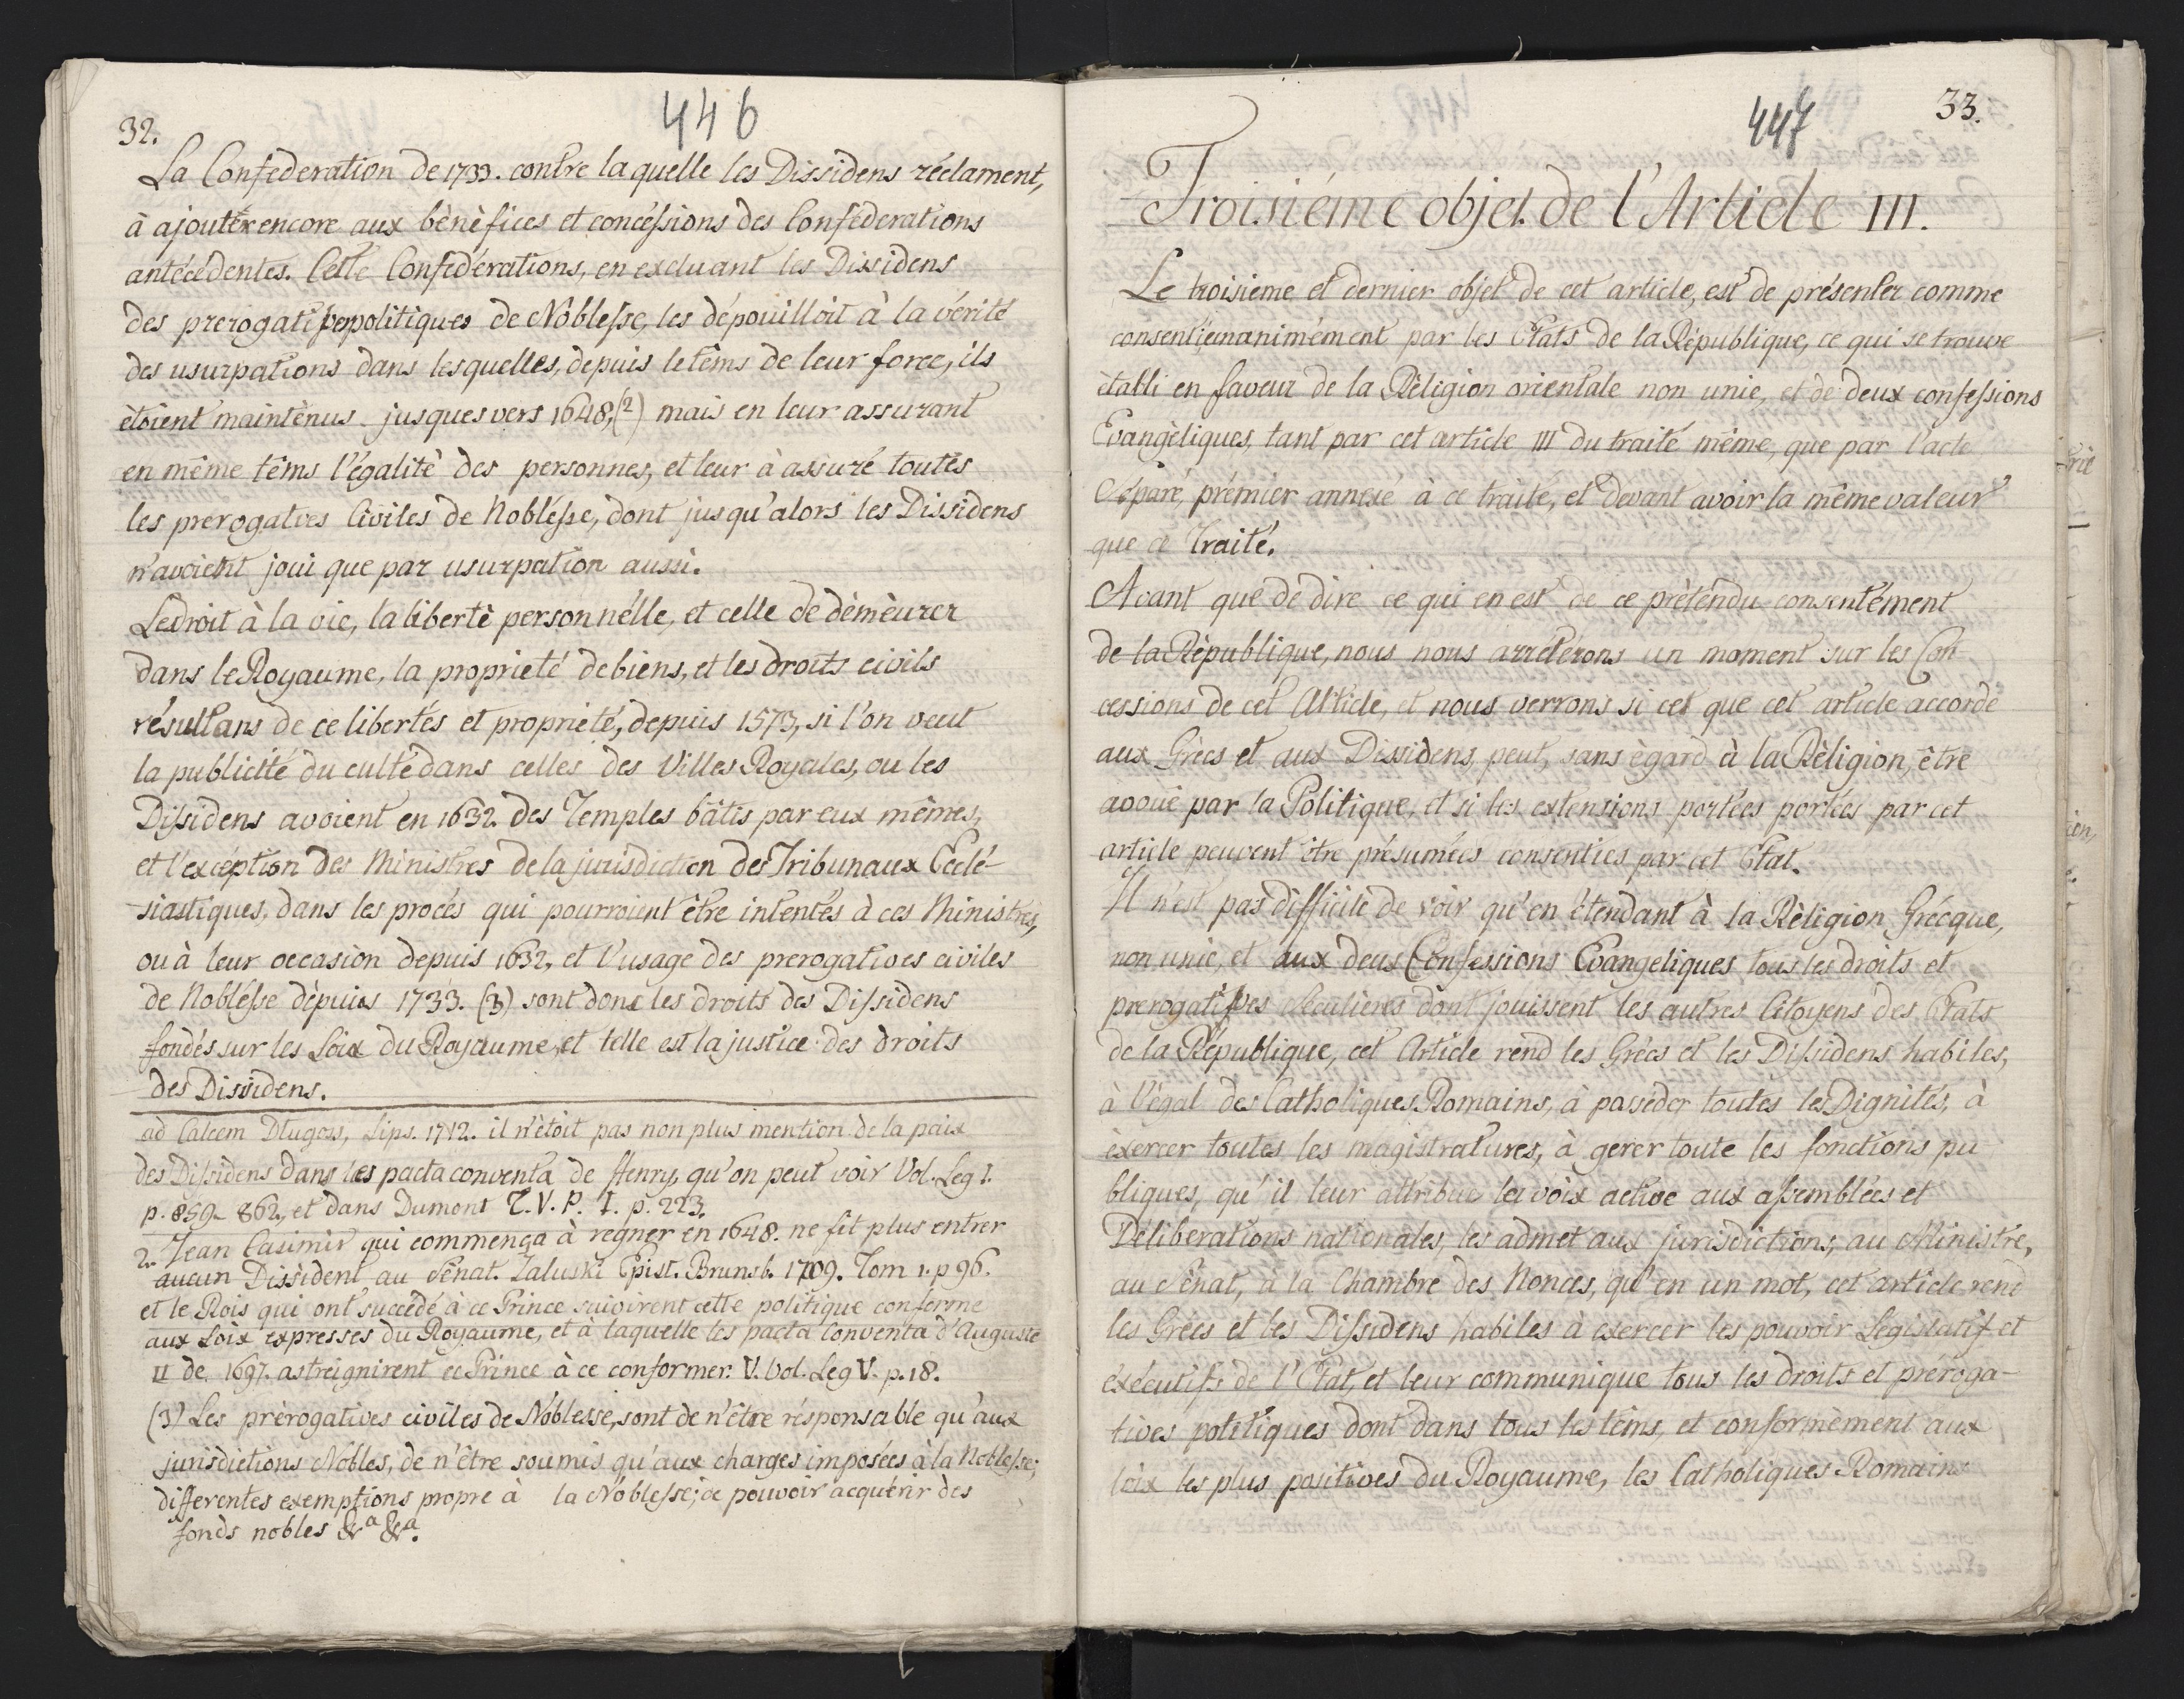 446
32.
La Confederation de 1733. contre laquelle les Dissidens réclament,
à ajouter encore aux bènèfices et concéssions des Confèderations
antécédentes. Cette Confédérations, en excluant les Dissidens
des prerogatives politiques de Noblesse, les dépouilloit à la vérité
des usurpations dans lesquelles, depuis le tèms de leur force, ils
ètoient maintènus jusques vers 1648,(2) mais en leur assurant
en même têms l'égalitè des personnes, et leur à assuré toutes
les prerogatves Civiles de Noblésse, dont jusqu'alors les Dissidens
n'avoient joui que par usurpation aussi.
Le droit à la vie, la libertè personnélle, et celle de dèmèurer
dans le Royaume, la proprieté de biens, et les droits civils
résultans de ce libertés et proprieté, depuis 1573, si l'on veut
la publicité du culte dans celles des Villes Royales, ou les
Dissidens avoient en 1632. des Temples bâtis par eux mêmes,
et l'excéption des Ministres de la jurisdiction des Tribunaux Ecclé-
siastiques, dans les procés qui pourroient être intentés à ces Ministres,
ou à leur occasion depuis 1632, et l'usage des prerogatives civiles
de Nobléssse dèpuis 1733. (3) sont donc les droits des Dissidens
fondés sur les Loix du Royaume, et telle est la justice des droits
des Dissidens.
ad Calcem Dlugoss, Lips. 1712. il n'étoit pas non plus mention de la paix
des Dissidens dans les pacta conventa de Henry, qu'on peut voir Vol. Leg I.
p. 859- 862, et dans Dumont T. V. P. I. p. 223.
2. Jean Casimir qui commença à regner en 1648. ne fit plus entrer
aucun Dissident au Sénat. Zaluski Epist. Brunsb. 1709. Tom 1. p 96.
et le Rois qui ont succédé à ce Prince suivirent cette politique conforme
aux Loix expresses du Royaume, et à laquelle les pacta Conventa d'Auguste
II de 1697. astreignirent ce Prince à ce conformer. V. Vol. Leg V. p. 18.
(3) Les prèrogatives civiles de Noblesse, sont de n'être résponsable qu'aux
jurisdictions Nobles, de n'être soumis qu'aux charges imposées à la Noblesse;
differentes exemptions propre à la Noblesse; de pouvoir acquérir des
fonds nobles &a &a.
447
33.
Troisiéme objet de l'Article III.
Le troisieme et dernier objet de cet article, est de présenter comme
consenti unanimément par les Etats de la République, ce qui se trouve
ètabli en faveur de la Rèligion orientale non unie, et de deux confessions
Evangèliques, tant par cet article III du traité même, que par l'acte
Séparé, prémier annexé à ce traité, et devant avoir la même valeur
que ce Traité.
Avant que de dire ce qui en est de ce prètèndu consentement
de la Rèpublique, nous nous arrétérons un moment sur les Con-
cessions de cet Article, et nous verrons si cet que cet article accorde
aux Grécs et aux Dissidens, peut, sans ègard à la Rèligion, être
avoué par la Politique, et si les extensions portées portées par cet
article peuvent être présumées consenties par cet Etat.
Il n'est pas difficile de voir qu'en étendant à la Rèligion Grécque,
non unie, et aux deux Confessions Evangeliques tous les droits et
prerogatives séculieres dont jouissent les autres Citoyens des Etats
de la République, cet Article rend les Grécs et les Dissidens habiles,
à l'égal des Catholiques Romains, à posséder toutes les Dignités, à
exercer toutes les magistratures, à gerer toute les fonctions pu
bliques, qu'il leur attribue la voix active aux assemblées et
Déliberations nationales, les admet aux jurisdictions, au Ministre,
au Sénat, à la Chambre des Nonces, qu'en un mot, cet article rend
les Grécs et les Dissidens habiles à exercer les pouvoir Législatif et
éxécutifs de l'Etat, et leur communique tous les droits et prèroga-
tives politiques dont dans tous les tèms, et conformèment aux
loix les plus positives du Royaume, les Catholiques Romains